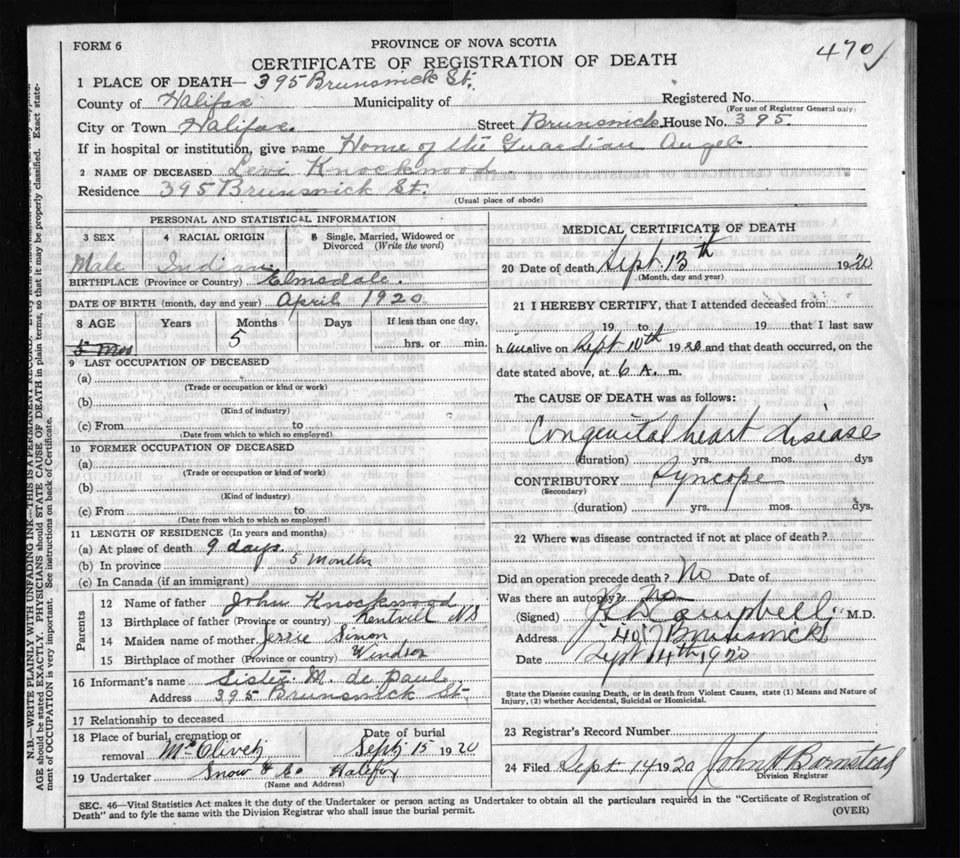 FORM 6
PROVINCE OF NOVA SCOTIA
4701
CERTIFICATE OF REGISTRATION OF DEATH
1 PLACE OF DEATH— 395 Brunswick St.
County of Halifax Municipality of Registered No.
(For use of Registrar General only)
City or Town Halifax. Street Brunswick House No. 395.
If in hospital or institution, give name Home of the Guardian Angel
2 NAME OF DECEASED Levi Knockwood
Residence 395 Brunswick St.
(Usual place of abode)
PERSONAL AND STATISTICAL INFORMATION
3 SEX 4 RACIAL ORIGIN 5 Single, Married, Widowed or Divorced (Write the word)
Male Indian
BIRTHPLACE (Province or Country) Elmsdale.
DATE OF BIRTH (month, day and year) April 1920
8 AGE Years Months Days If less than one day,
5 mos 5 hrs. or min.
9 LAST OCCUPATION OF DECEASED
(a)
(Trade or occupation or kind or work)
(b)
(Kind of industry)
(c) From to
(Date from which to which so employed)
10 FORMER OCCUPATION OF DECEASED
(a)
(Trade or occupation or kind of work)
(b)
(Kind of industry)
(c) From to
(Date from which to which so employed)
11 LENGTH OF RESIDENCE (In years and months)
(a) At place of death 9 days.
(b) In province 5 Months
(c) In Canada (if an immigrant)
Parents
12 Name of father John Knockwood
13 Birthplace of father (Province or country) Kentvill NS
14 Maiden name of mother Jerrie Simon
15 Birthplace of mother (Province or country) Windsor
16 Informant's name Sister M. de Paul
Address 395 Brunswick St.
17 Relationship to deceased
18 Place of burial, cremation or removal Date of burial
Sept 15 1920
19 Undertaker Snow & Co Halifax
(Name and Address)
MEDICAL CERTIFICATE OF DEATH
20 Date of death Sept. 13th 1920
(Month, day and year)
21 I HEREBY CERTIFY, that I attended deceased from
19 to 19 that I last saw
h im alive on Sept 10th 1920 and that death occurred, on the
date stated above, at 6 A. m.
The CAUSE OF DEATH was as follows:
Congenital heart disease
(duration) yrs. mos. dys
CONTRIBUTORY Syncope
(Secondary)
(duration) yrs. mos. dys.
22 Where was disease contracted if not at place of death?
Did an operation precede death? No Date of
Was there an autopsy? No
(Signed) Campbell M.D.
Address 407 Brunswick
Date Sept 14th 1920
State the Disease causing Death, or in death from Violent Causes, state (1) Means and Nature of
Injury, (2) whether Accidental, Suicidal or Homicidal.
23 Registrar's Record Number
24 Filed Sept 14 1920 John H Barnstead
Division Registrar
SEC. 46—Vital Statistics Act makes it the duty of the Undertaker or person acting as Undertaker to obtain all the particulars required in the "Certificate of Registration of
Death" and to fyle the same with the Division Registrar who shall issue the burial permit. (OVER)
N.B.—WRITE PLAINLY WITH UNFADING INK—THIS IS A PERMANENT RECORD.
AGE should be stated EXACTLY. PHYSICIANS should STATE CAUSE OF DEATH in plain terms, so that it may be properly classified. Exact state-
ment of OCCUPATION is very important. See instructions on back of Certificate.